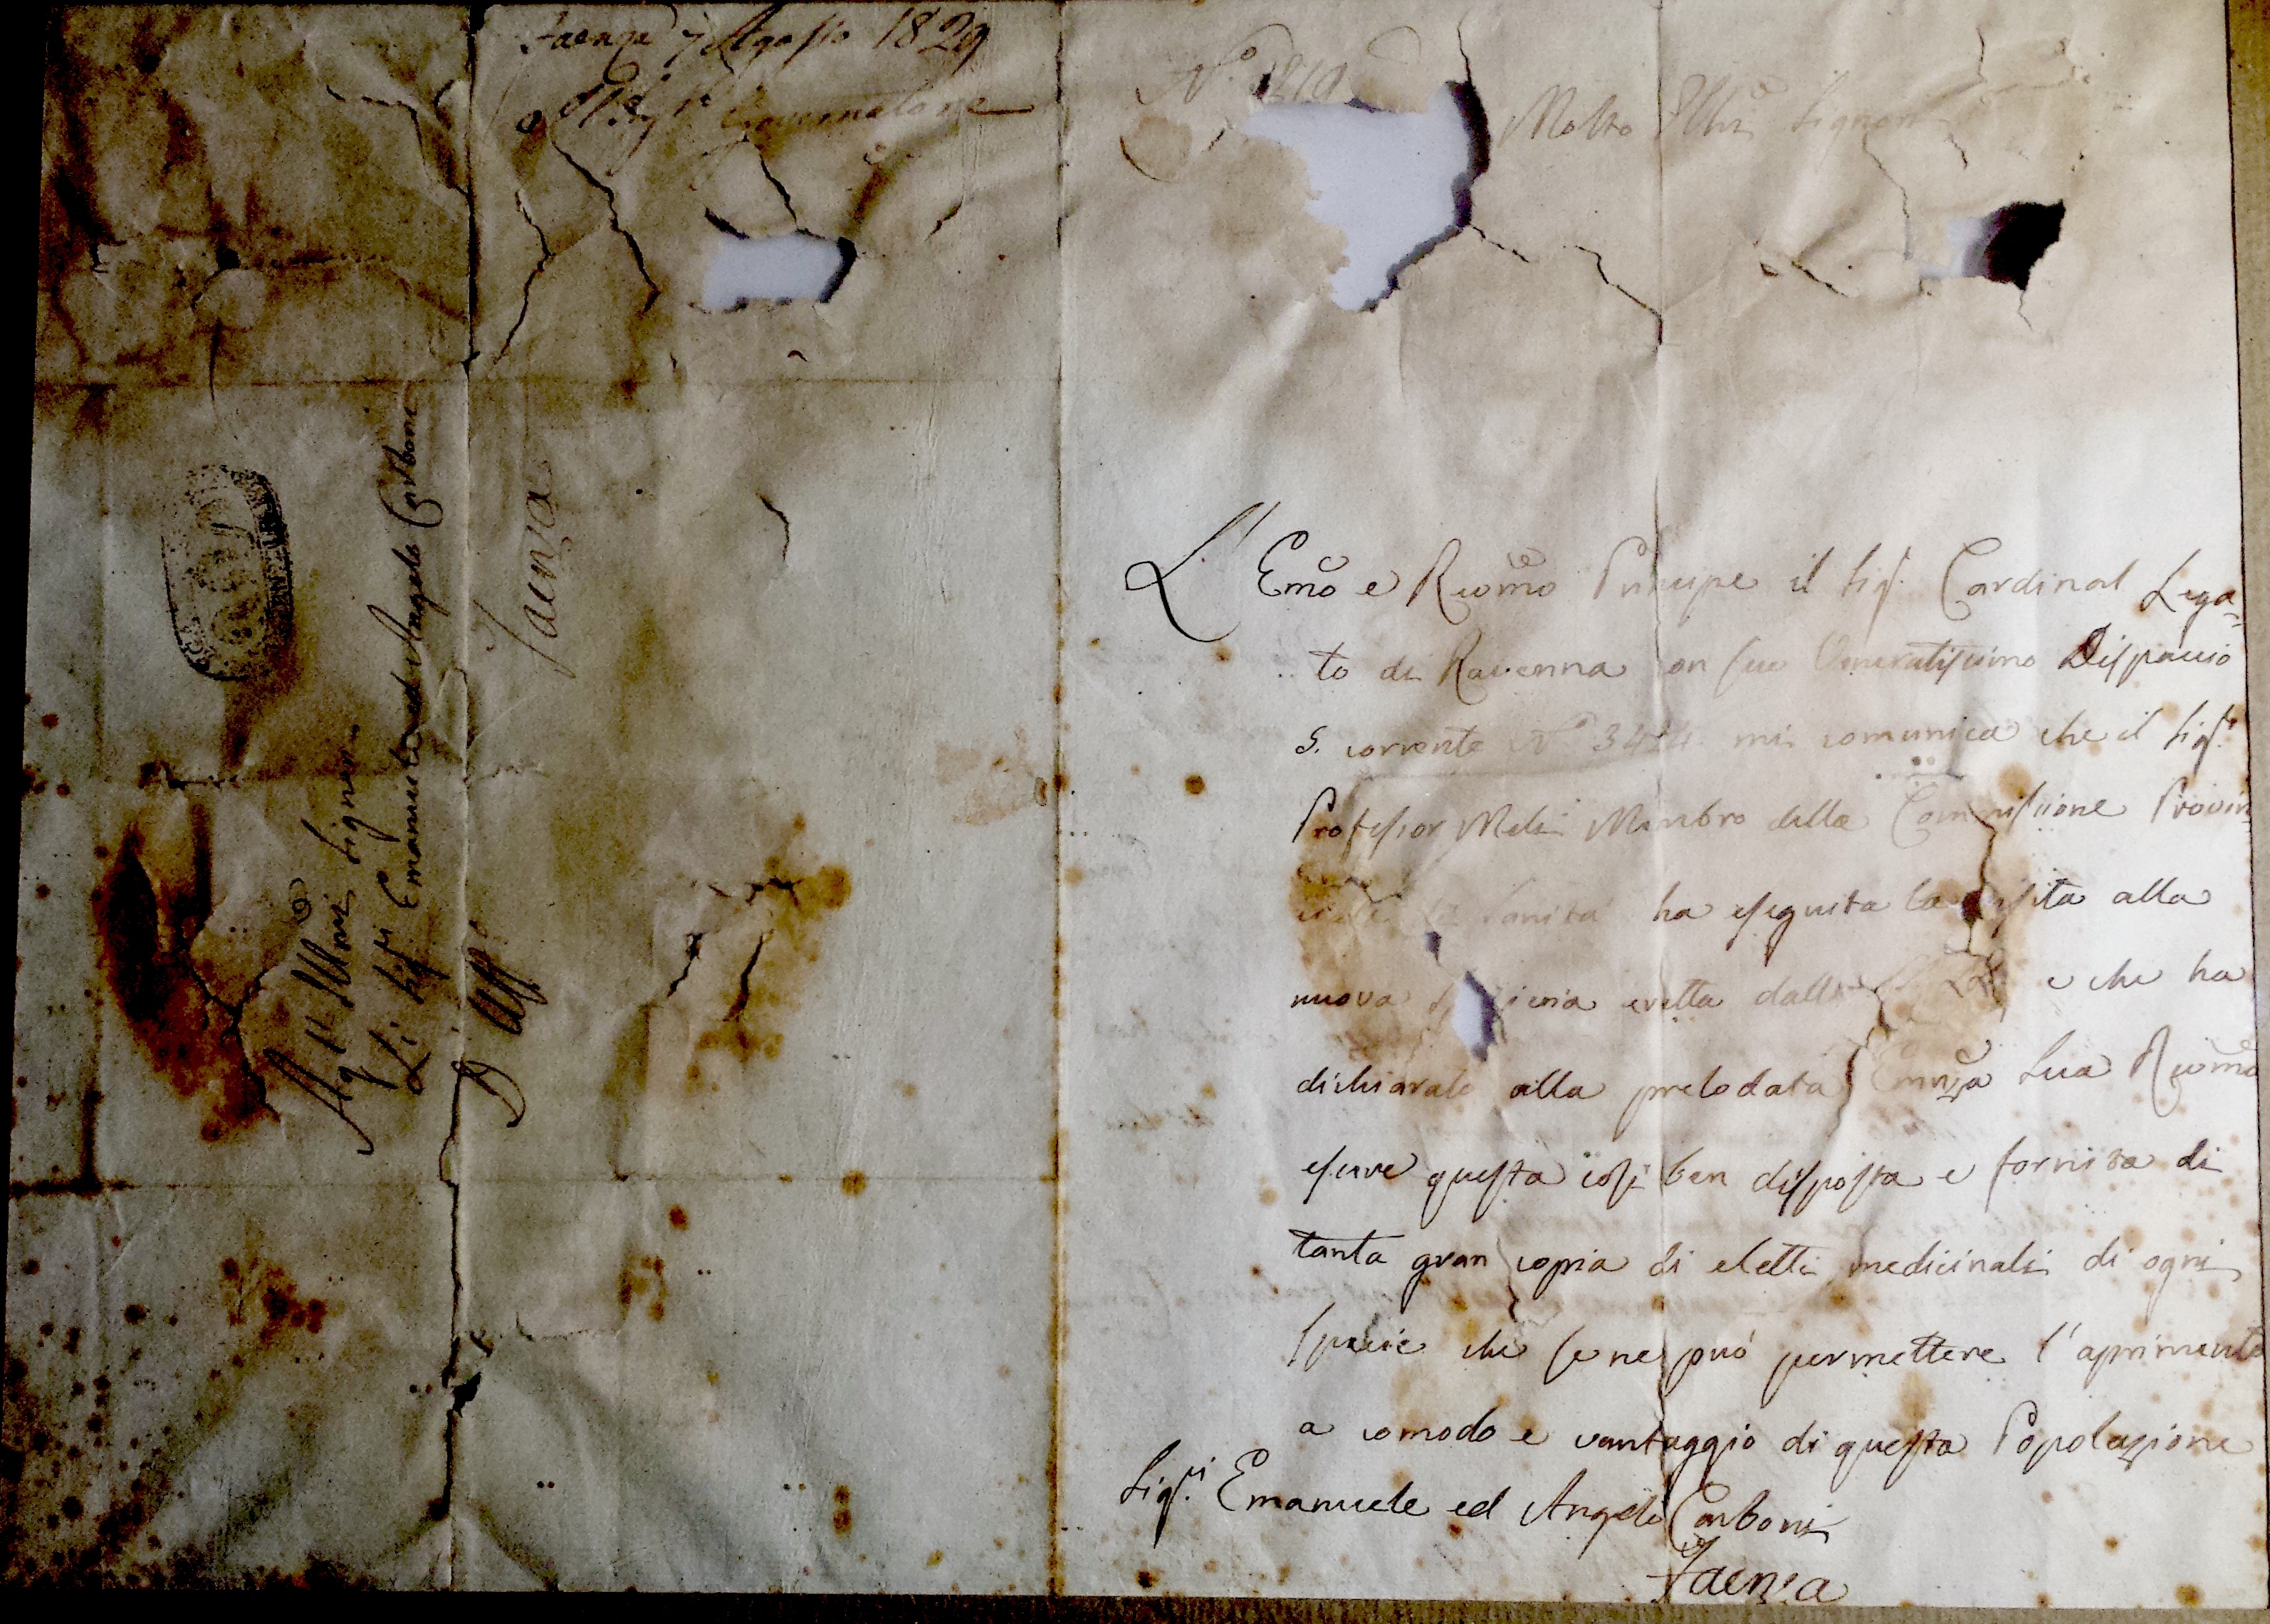 Faenza 7 Agosto 1829
Il Sig.r Governatore
Agl' Ill.mi Signori
Li Sig.ri Emanuele ed Angelo Carboni
D'Uff.o
Faenza
N.o
Molto Ill.ri Signori
L' Emo e Rev̄mo Principe il Sig.r Cardinal Lega-
to di Ravenna con suo Veneratissimo Dispaccio
5. corrente N.o 3424 mi comunica che il Sig.r
Professor Meli Membro della Commissione Provin-
ciale di Sanità ha eseguita la visita alla
nuova eretta dalle e che ha
dichiarato alla prelodata Eminza Sua Rev̄ma
essere questa così ben disposta e fornita di
tanta gran copia di eletti medicinali di ogni
specie che se ne può permettere l'aprimento
a comodo e vantaggio di questa Popolazione
Sig.ri Emanuele ed Angelo Carboni
Faenza